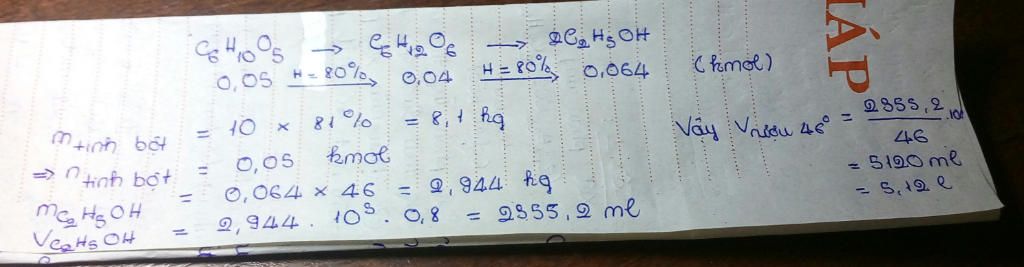 C₆H₁₀O₅ → C₆H₁₂O₆ → 2C₂H₅OH
0,05 H=80% → 0,04 H=80% → 0,064 (kmol)
m tinh bột = 10 × 81% = 8,1 kg
⇒ n tinh bột = 0,05 kmol
m C₂H₅OH = 0,064 × 46 = 2,944 kg
V C₂H₅OH = 2,944 . 10³ . 0,8 = 2355,2 ml
Vậy V rượu 46° = 2355,2 / 46 .100
= 5120 ml
= 5,12 l
ÁP